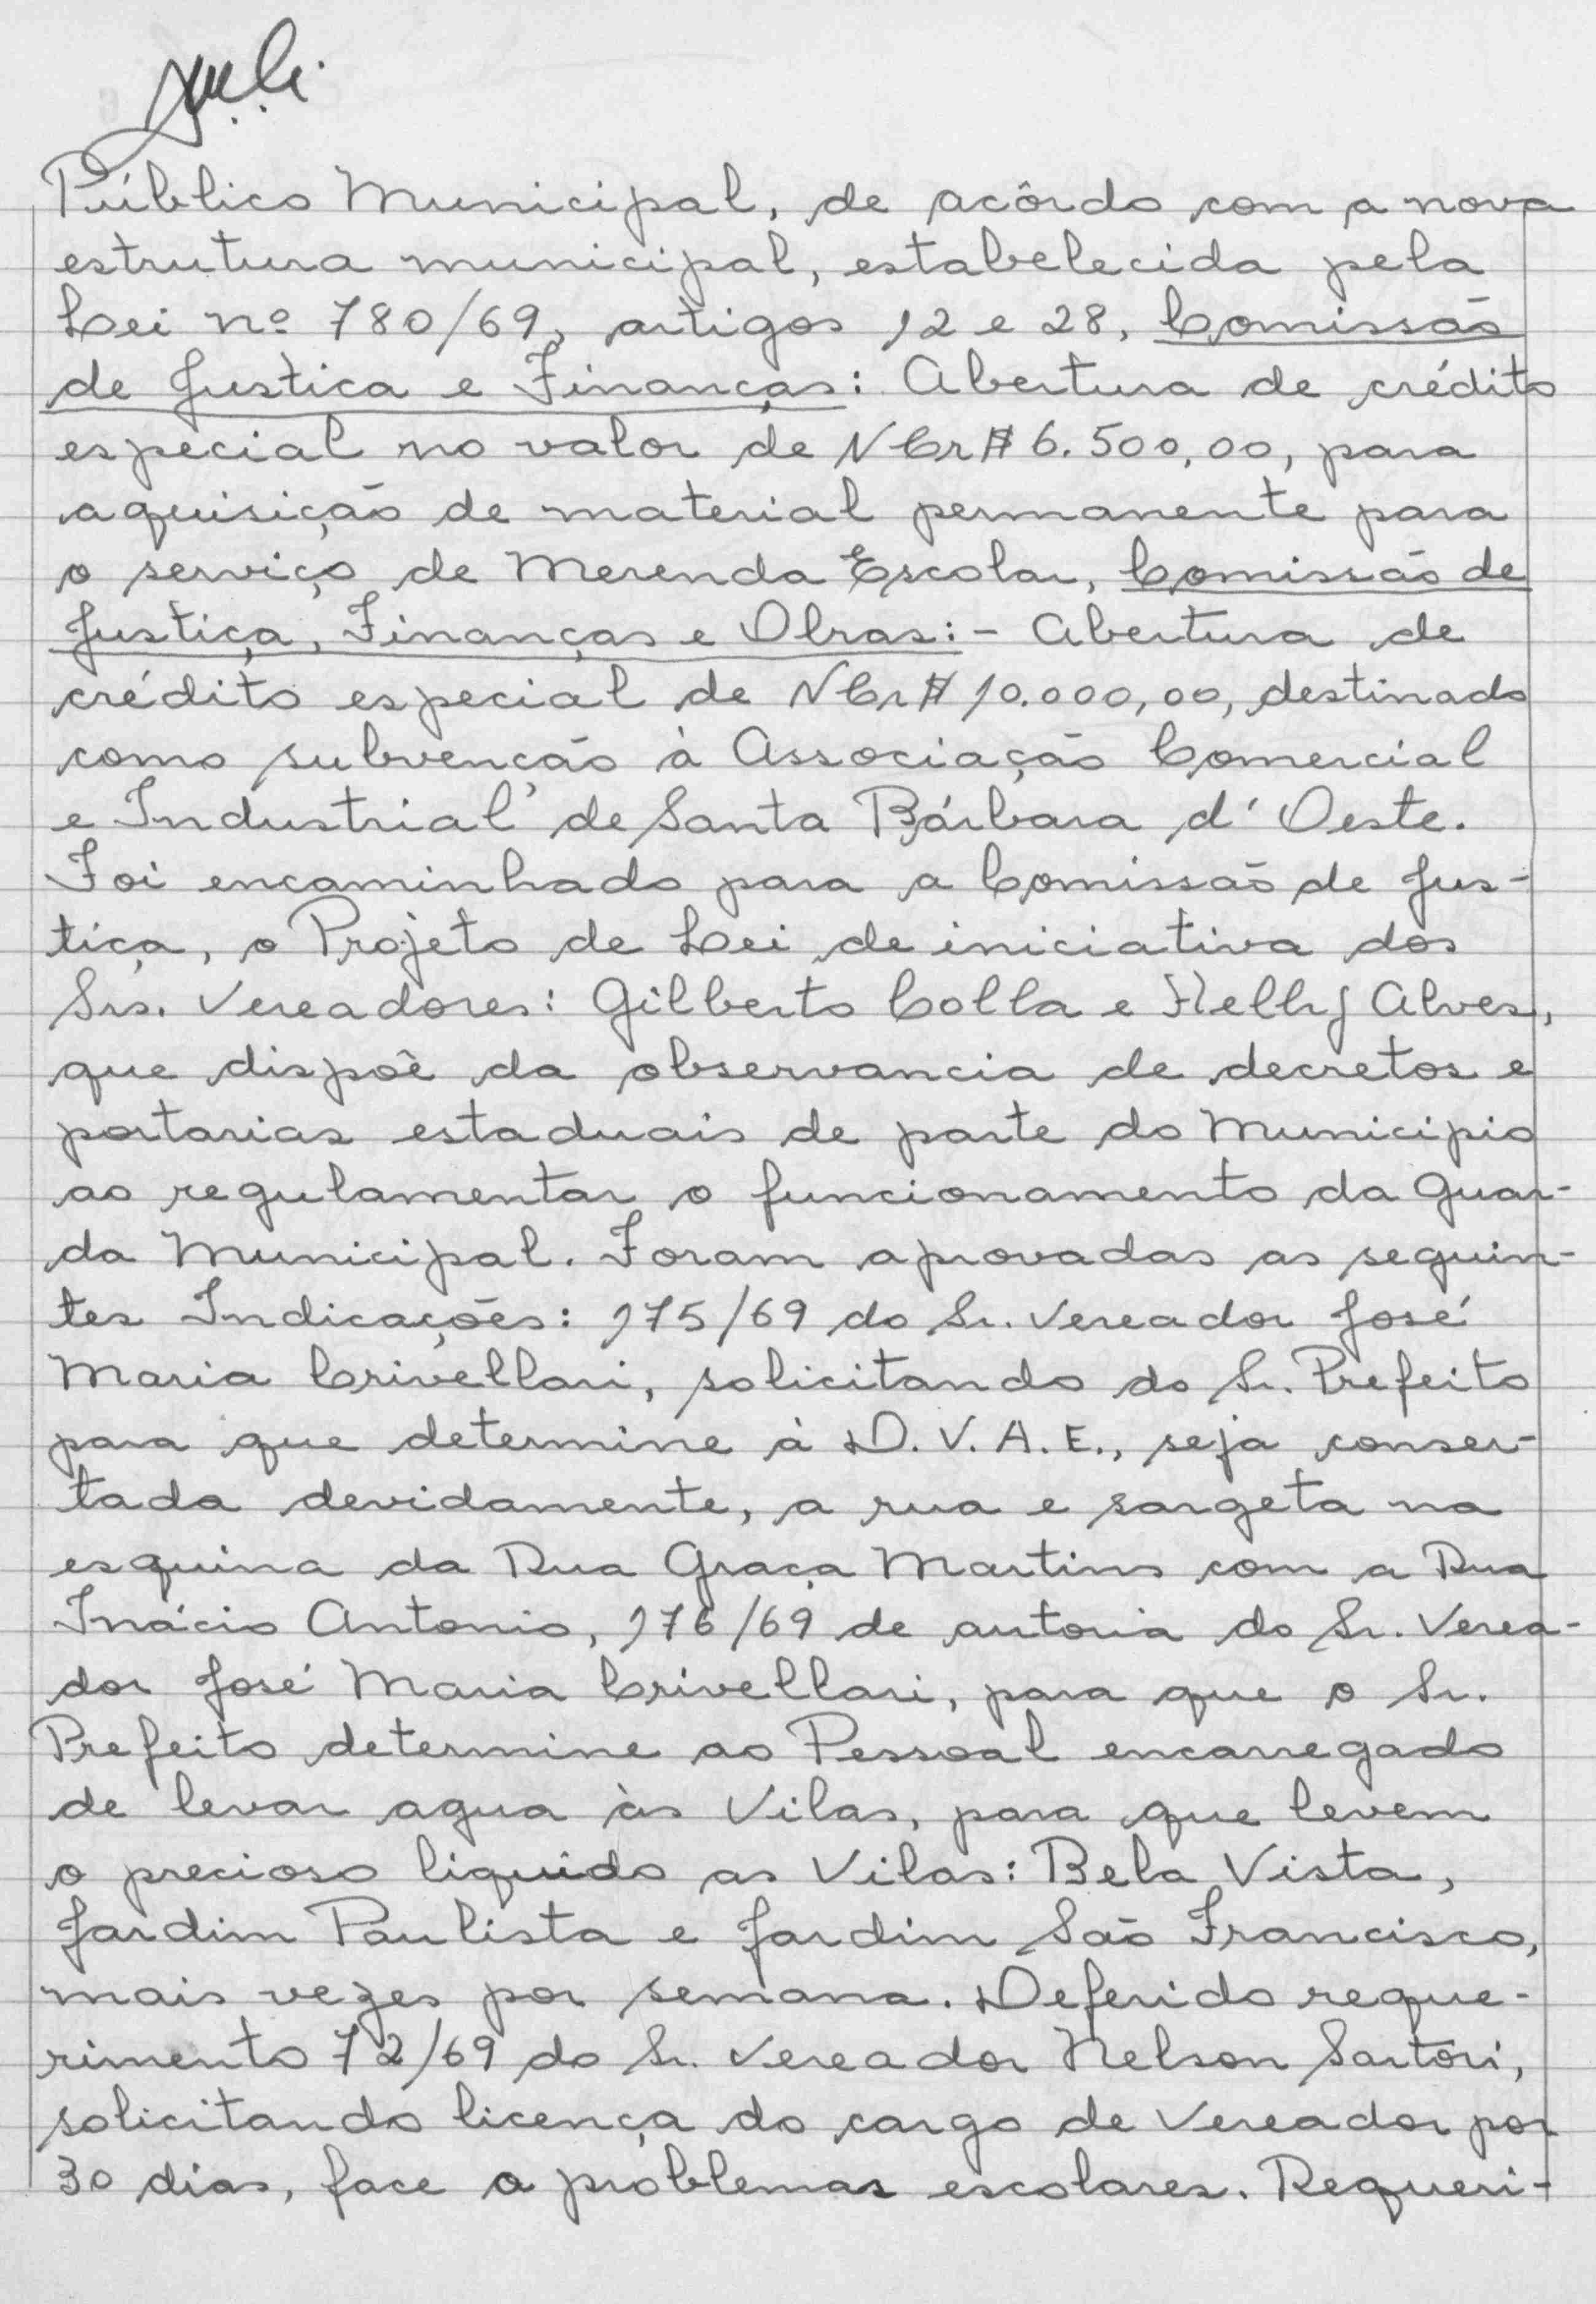 Público Municipal, de acôrdo com a nova
estrutura municipal, estabelecida pela
Lei nº 780/69, artigos 12 e 28, Comissão
de Justica e Finanças: Abertura de crédito
especial no valor de NCr$ 6.500,00, para
aquisição de material permanente para
o serviço de Merenda Escolar, Comissão de
Justiça, Finanças e Obras:- Abertura de
crédito especial de NCr$ 10.000,00, destinado
como subvenção à Associação Comercial
e Industrial de Santa Bárbara d'Oeste.
Foi encaminhado para a Comissão de Jus-
tiça, o Projeto de Lei de iniciativa dos
Srs. Vereadores: Gilberto Colla e Helly Alves,
que dispoê da observancia de decretos e
portarias estaduais de parte do Municipio
ao regulamentar o funcionamento da Guar-
da Municipal. Foram aprovadas as seguin-
tes Indicações: 175/69 do Sr. Vereador José
Maria Crivellari, solicitando do Sr. Prefeito
para que determine à D.V.A.E., seja conser-
tada devidamente, a rua e sargeta na
esquina da Rua Graça Martins com a Rua
Inácio Antonio, 176/69 de autoria do Sr. Verea-
dor José Maria Crivellari, para que o Sr.
Prefeito determine ao Pessoal encarregado
de levar agua às Vilas, para que levem
o precioso liquido as Vilas: Bela Vista,
Jardim Paulista e Jardim São Francisco,
mais vezes por semana. Deferido reque-
rimento 72/69 do Sr. Vereador Nelson Sartori,
solicitando licença do cargo de Vereador por
30 dias, face a problemas escolares. Requeri-